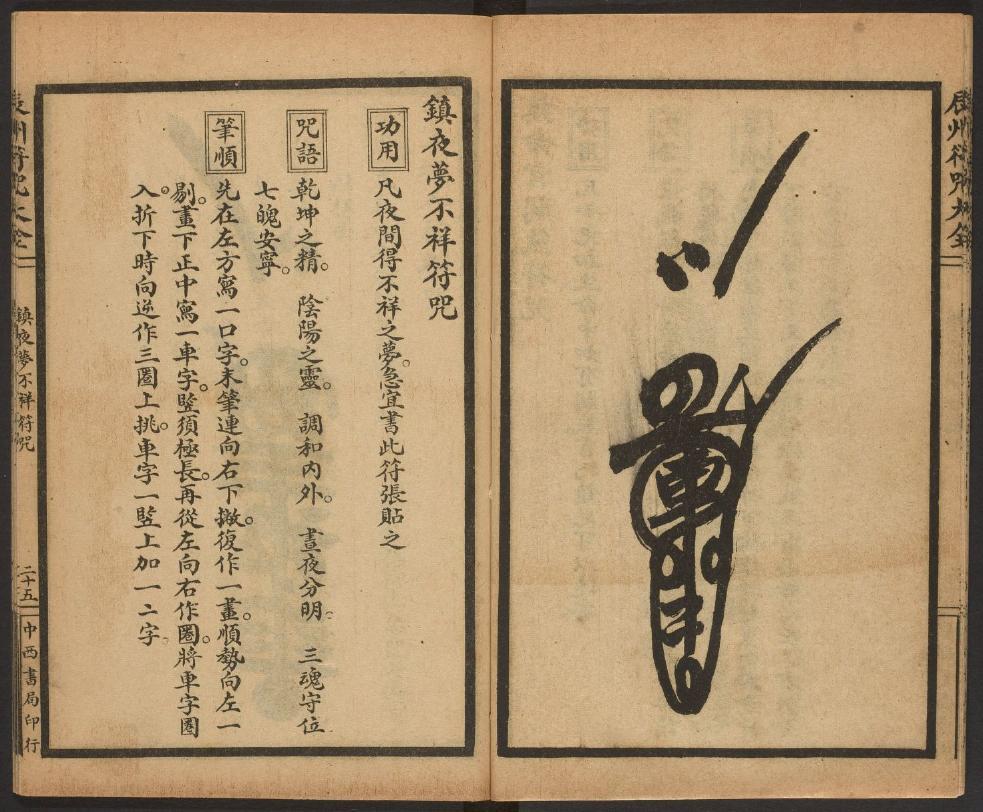 辰州符咒大全
鎮夜夢不祥符咒
功用
凡夜間得不祥之夢。急宜書此符張貼之
咒語
乾坤之精。 陰陽之靈。 調和內外。 晝夜分明。 三魂守位
七魄安寧。
筆順
先在左方寫一口字。末筆連向右下撇。復作一畫。順勢向左一
剔。畫下正中寫一車字。豎須極長。再從左向右作圈。將車字圈
入。折下時向逆作三圈上挑。車字一豎上加一二字。
辰州符咒大全
鎮夜夢不祥符咒
二十五
中西書局印行